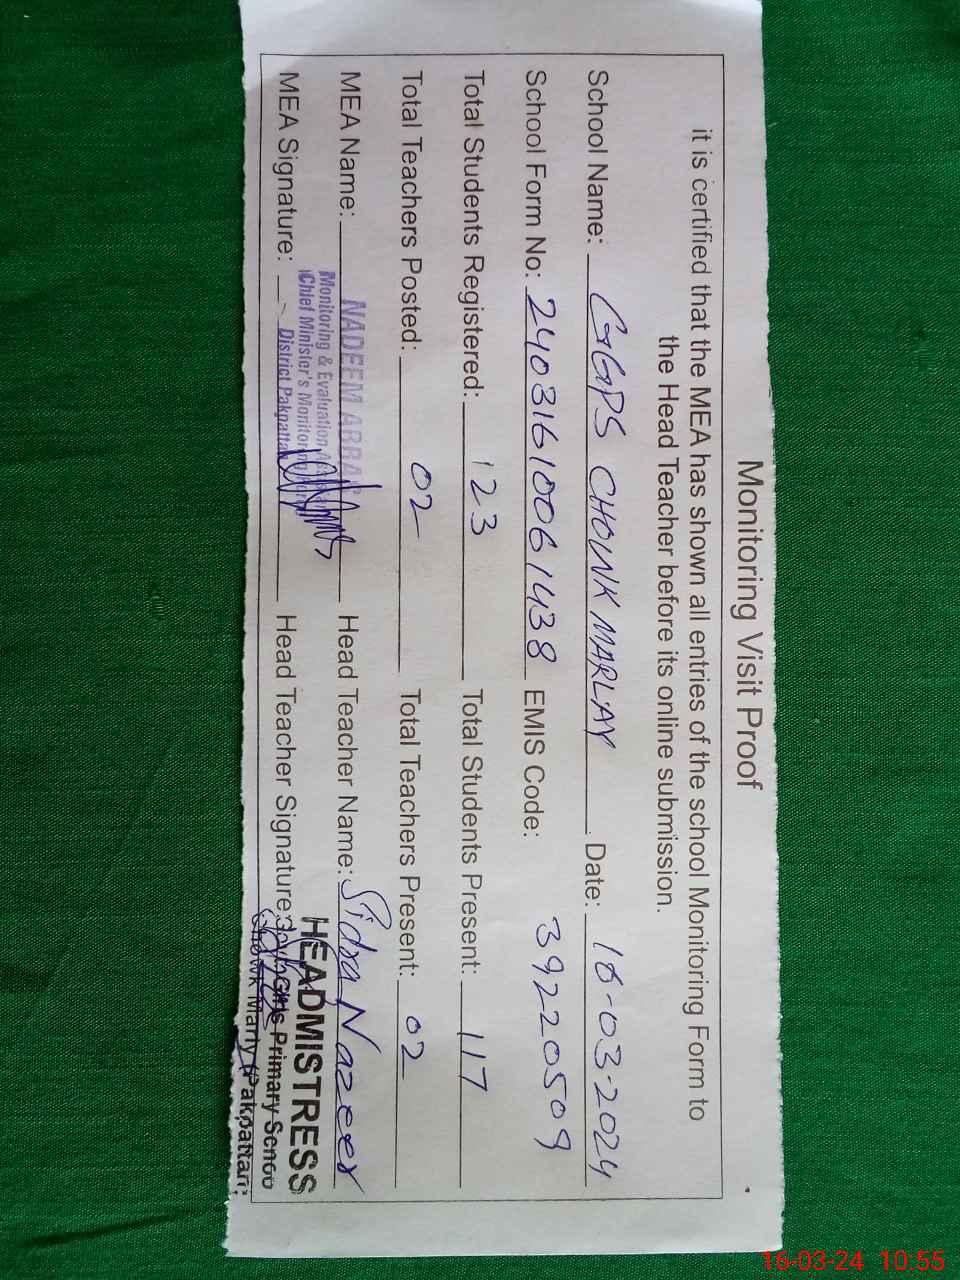 Monitoring Visit Proof
it is certified that the MEA has shown all entries of the school Monitoring Form to
the Head Teacher before its online submission.
School Name: GGPS CHOWK MARLAY Date: 16-03-2024
School Form No: 2403161006 1438 EMIS Code: 39220509
Total Students Registered: 123 Total Students Present: 117
Total Teachers Posted: 02 Total Teachers Present: 02
MEA Name: NADEEM ABBAS Head Teacher Name: Sidra Nazeer
Monitoring & Evaluation
Chief Minister's Monitoring
District Pakpattan
MEA Signature: Head Teacher Signature:
HEADMISTRESS
Girls Primary Schoo
Chowk Marly (Pakpattan)
16-03-24 10:55